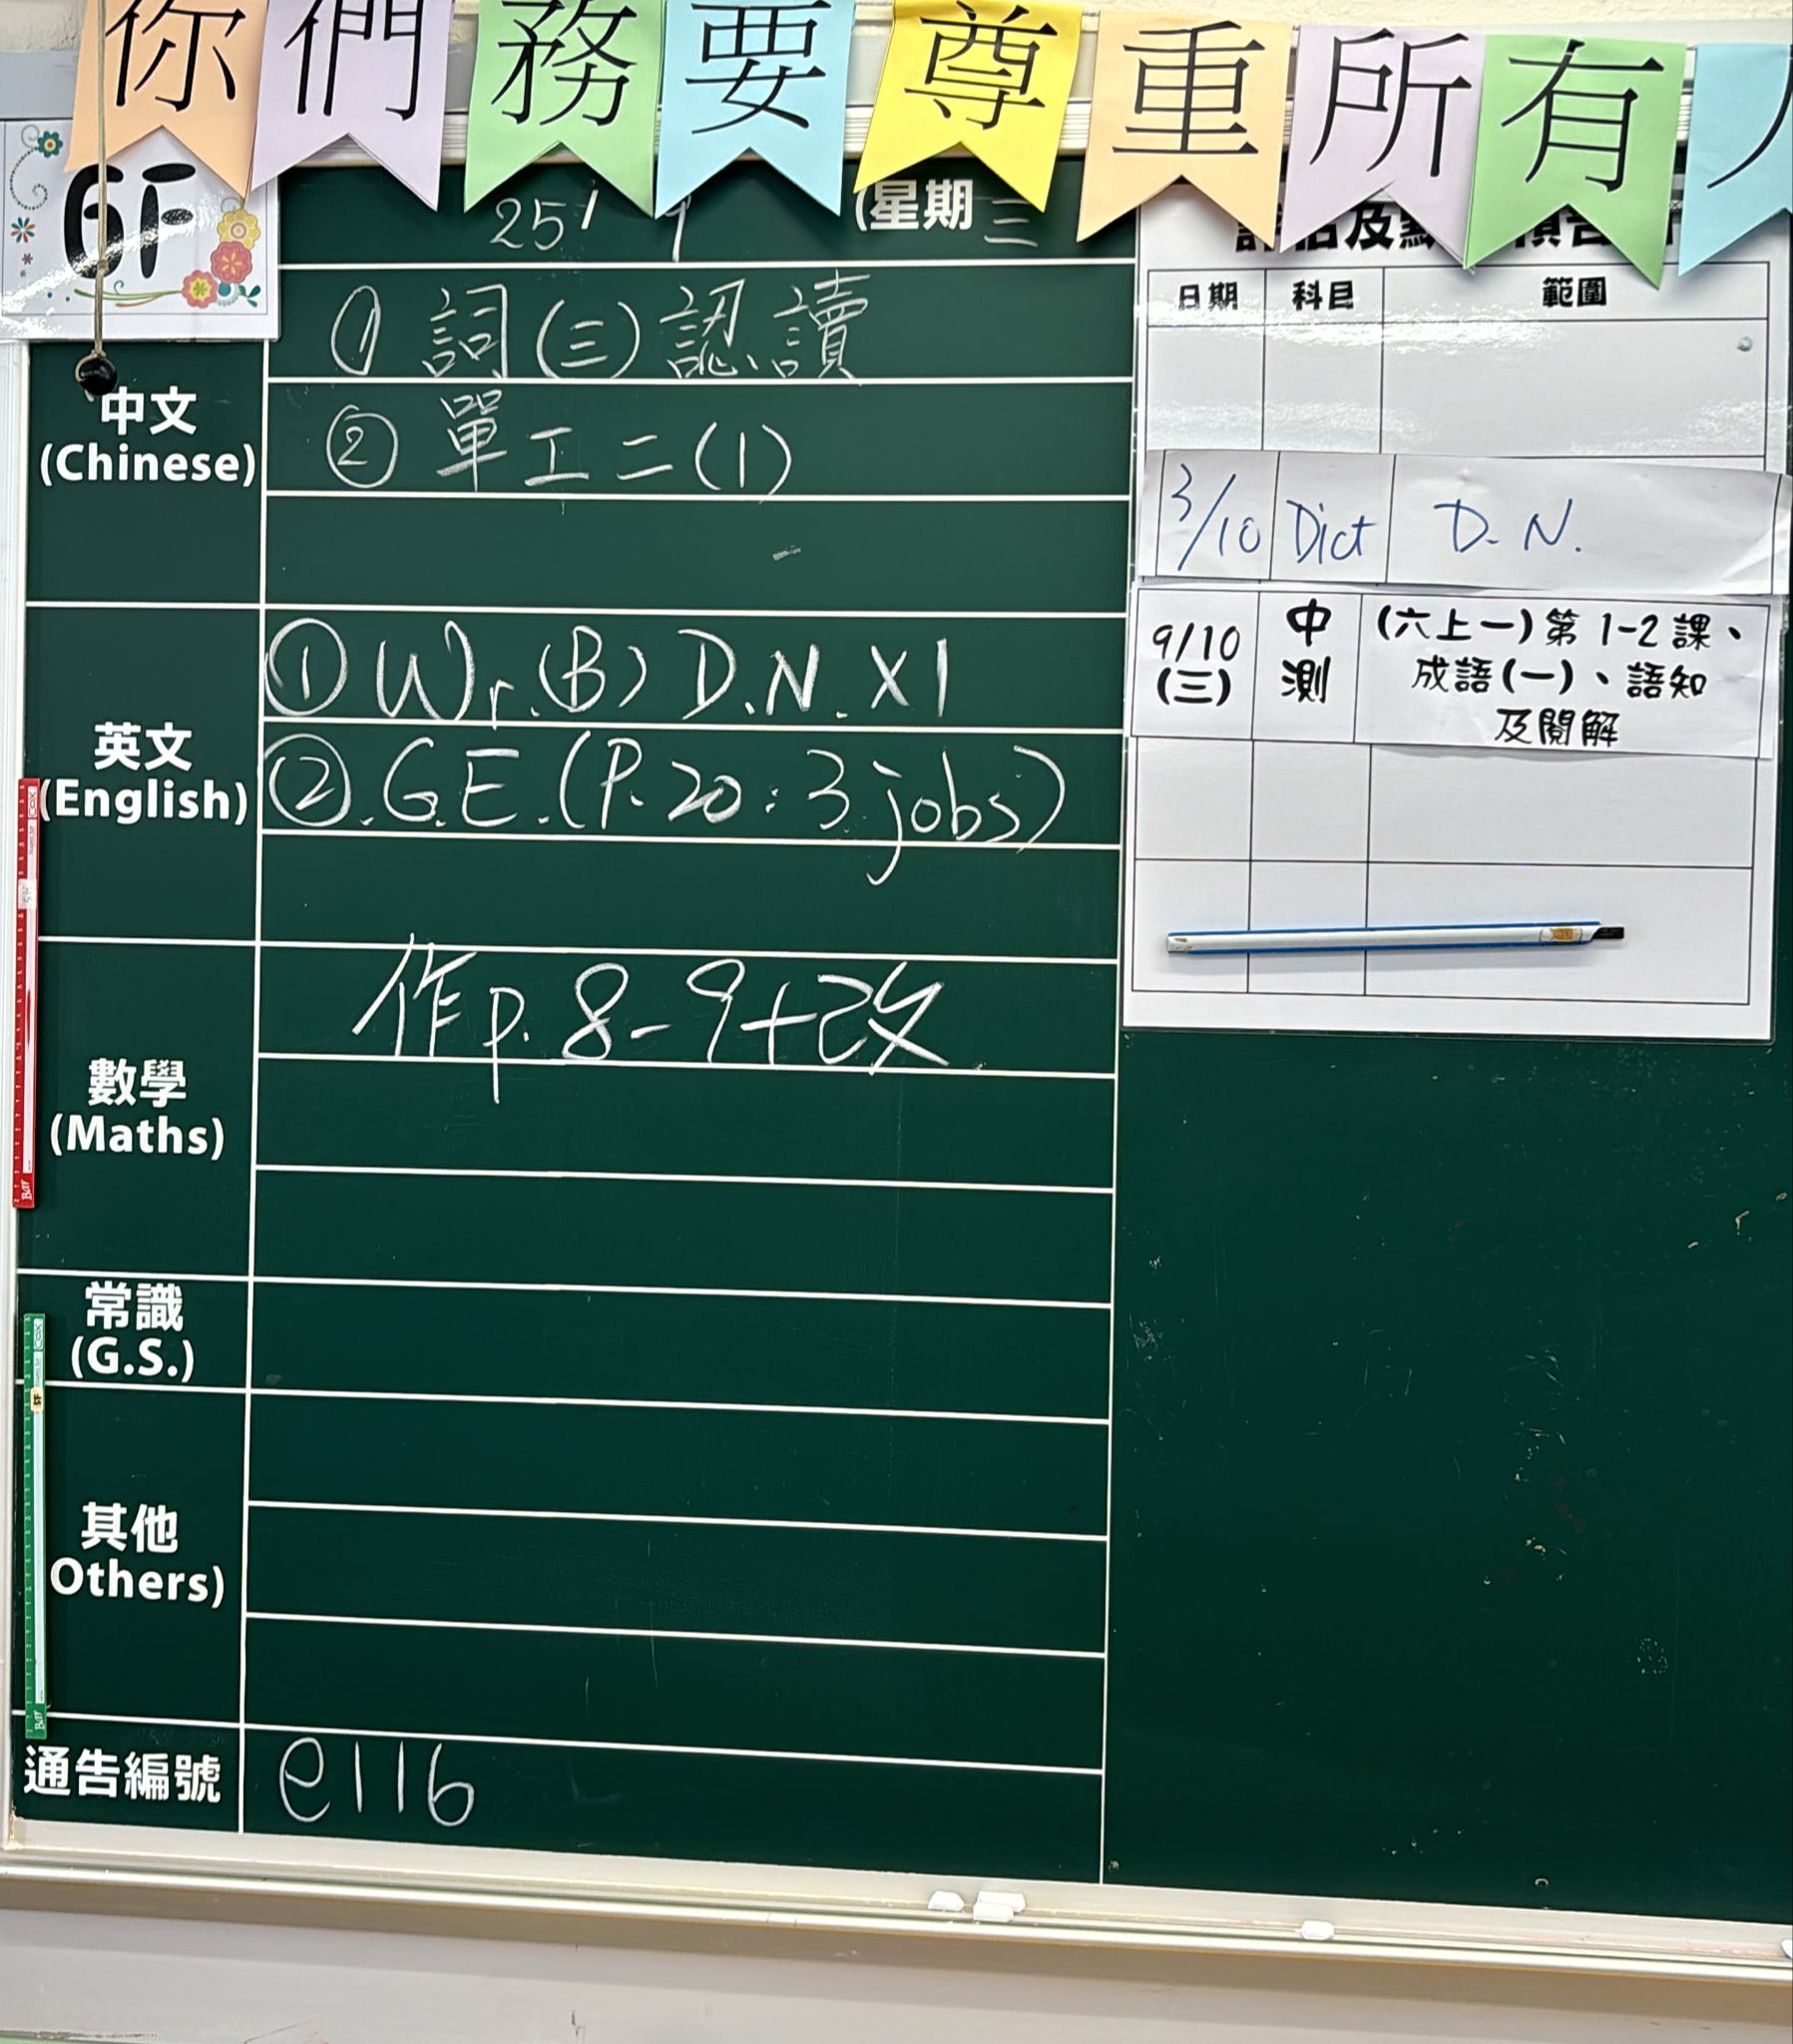 你們務要尊重所有人
6F
25/9 (星期三
中文
(Chinese)
① 詞(三)認讀
② 單工二(1)
英文
(English)
① Wr.(B) D.N. X1
②.G.E.(P.20:3 jobs)
數學
(Maths)
作p.8-9+改
常識
(G.S.)
其他
Others)
通告編號
e116
日期 科目 範圍
3/10 Dict D.N.
9/10
(三)
中
測
(六上一)第1-2課、
成語(一)、語知
及閱解